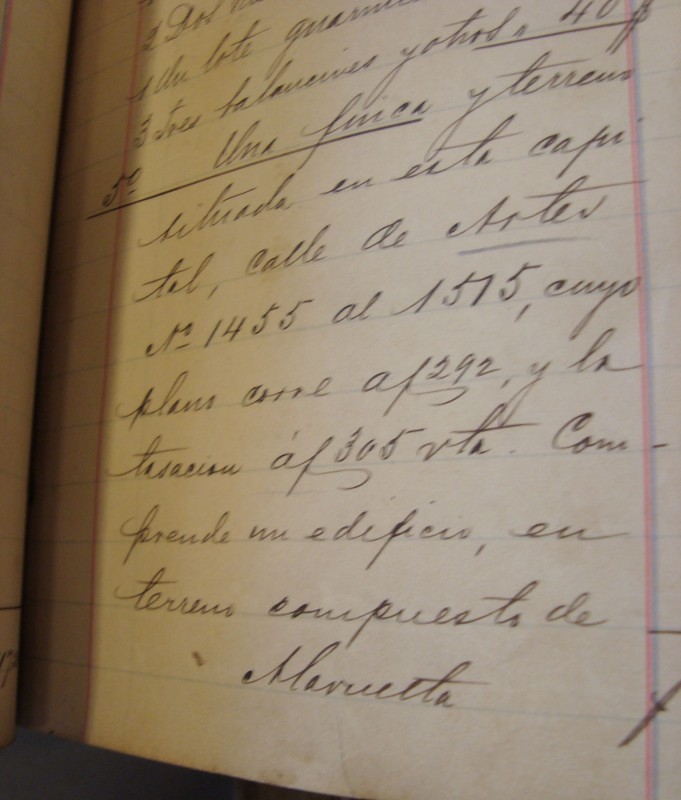 2 Dos
1 Un lote guarnic
3 Tres balancines y otros " 40 p
5º Una finca y terreno
situada en esta capi
tal, calle de Artes
Nº 1455 al 1515, cuyo
plano corre a f 292, y la
tasacion á f 305 vta. Com-
prende un edificio, en
terreno compuesto de
Alavuelta